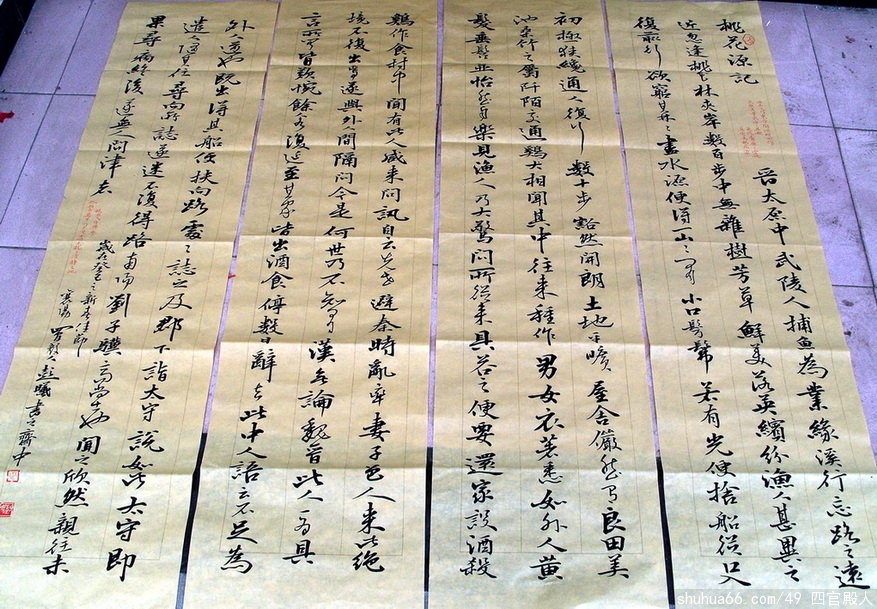 桃花源記 晉太原中武陵人捕魚為業緣溪行忘路之遠
近忽逢桃花林夾岸數百步中無雜樹芳草鮮美落英繽紛漁人甚異之
復前行欲窮其林〻盡水源便得一山〻有小口髣髴若有光便捨船從口入
初極狹纔通人復行數十步豁然開朗土地平曠屋舍儼然有良田美
池桑竹之屬阡陌交通鷄犬相聞其中往來種作男女衣著悉如外人黃
髮垂髫並怡然自樂見漁人乃大驚問所從來具答之便要還家設酒殺
鷄作食村中聞有此人咸來問訊自云先世避秦時亂率妻子邑人來此絕
境不復出焉遂與外人間隔問今是何世乃不知有漢無論魏晉此人一為具
言所聞皆歎惋餘各復延至其家皆出酒食停數日辭去此中人語云不足為
外人道也既出得其船便扶向路處〻誌之及郡下詣太守說如此太守即
遣人隨其往尋向所誌遂迷不復得路南陽劉子驥高尚士也聞之欣然親往未
果尋病終後遂無人問津者
歲在癸巳之新春佳節
襄陽 書之齋中
shuhua66.com/49 四官殿人